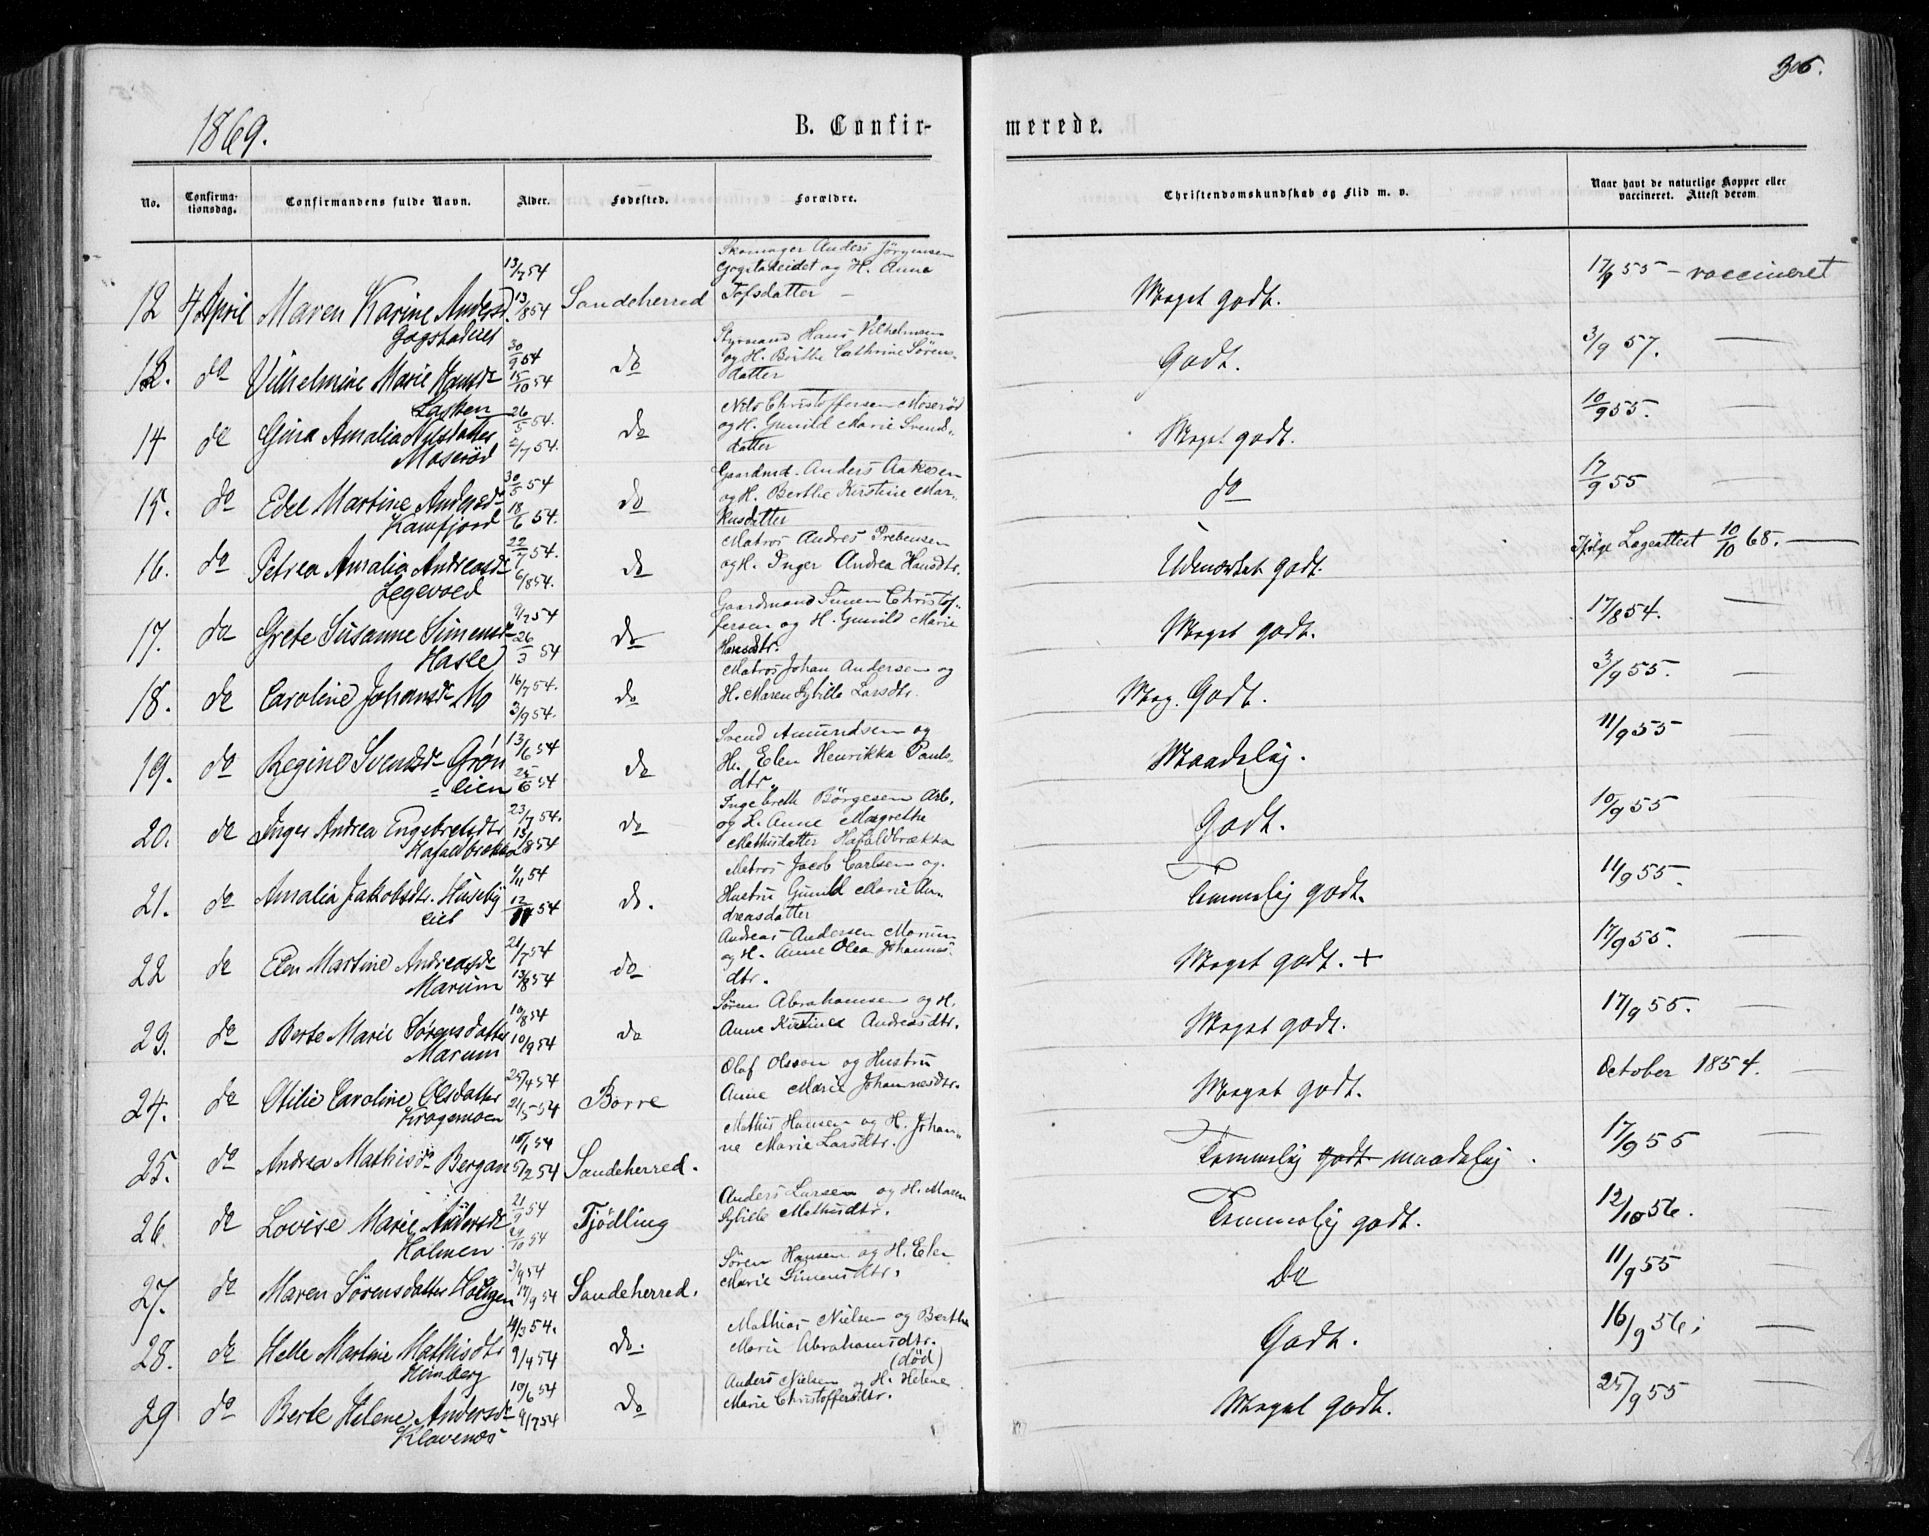 306.
1869.
B. Confir-
merede.
No.
Confirma-
tionsdag.
Confirmandens fulde Navn.
Alder.
Fødested.
Forældre.
Christendomskundskab og Flid m. v.
Naar havt de naturlige Kopper eller
vaccineret. Attest derom
12 4 April Maren Karine Andersd. 13/7 54 13/8 54 Sandeherred Skomager Anders Jørgensen
og H. Anne
Tofsdatter – Meget godt. 17/9 55 – vaccineret
13. do Vilhelmine Marie Hansd 30/9 54 15/10 54 do Styrmand Hans Vilhelmsen
og H. Birthe Cathrine Sørens-
datter Godt. 3/9 57. —
14 do Gina Amalia Nilsdatter
Moserød 26/5 54. 2/7 54. do Nils Christoffersen Moserød
og H. Gunild Marie Svends-
datter Meget godt. 10/9 55. —
15. do Edel Martine Andersd
Kamfjord 30/5 54 18/6 54. do Gaardmd. Anders Aakesen
og H. Berthe Kirstine Mar-
kusdatter do 17/9 55 —
16. do Petrea Amalia Andreasd
22/7 54. 6/8 54. do Matros Andres Prebensen
og H. Inger Andrea Hansdtr. Udmærket godt. Ifølge Lægeattest 10/10 68. —
17. do Grete Susanne Simensd
Hasle 9/2 54 26/3 54 do Gaardmand Simen Christof-
fersen og H. Gunild Marie
Hansdtr. Meget godt. 17/8 54. —
18. do Caroline Johansd Mo 16/7 54. 3/9 54. do Matros Johan Andersen og
H. Maren Sybille Larsdtr. Meg. Godt. 3/9 55. —
19. do Regine Svensd Grøn
= lien 13/6 54 25/6 54 do Svend Amundsen og
H. Elen Henrikka Pauls-
dtr. Maadelig. 11/9 55 —
20. do Inger Andrea Engebretsdtr
23/7 54. 13/8 54 do Ingebreth Børgesen Arb.
og H. Anne Margrethe
Mathisdatter Hafaldbrækka Godt. 10/9 55 —
21. do Amalia Jakobsdtr. Huseby
eiet 1/11 54 12/11 54 do. Matros Jacob Carlsen og
Hustru Gunild Marie An-
dreasdatter Temmelig godt. 11/9 55. —
22 do Elen Martine Andreasd
Marum 21/7 54 13/8 54 do Andreas Andersen Marum
og H. Anne Olea Johannes-
dtr. Meget godt. + 17/9 55. —
23. do Berte Marie Sørensdatter
Marum 10/8 54 10/9 54 do Søren Abrahamsen og H.
Anne Kirstine Andreasdtr. Meget godt. 17/9 55. —
24. do Otilie Caroline Olsdatter
Kragemoen 25/4 54 21/5 54 Borre Olaf Olsson og Hustru
Anne Marie Johannesdtr. Meget godt. October 1854. —
25. do Andrea Mathisd Bergan 15/1 54 5/2 54 Sandeherred. Mathis Hansen og H. Johan-
ne Marie Larsdtr. Temmelig godt maadelig. 17/9 55 —
26. do Lovise Marie Andersd
Holmen 21/9 54 29/10 54 Tjødling Anders Larsen og H. Maren
Sybille Mathisdtr. Temmelig godt. 12/10 56. —
27. do Maren Sørensdatter 3/9 54 17/9 54 Sandeherred. Søren Hansen og H. Elen
Marie Simensdtr. Do 11/9 55 —
28. do Helle Martine Mathisdtr
Himberg 14/3 54. 9/4 54 do. Mathias Nielsen og Berthe
Marie Abrahamsdtr.
(død) Godt. 16/9 56; —
29 do Berte Helene Andersd
Klavenæs 10/6 54 9/7 54 do Anders Nielsen og H. Helene
Marie Christoffersdtr. Meget godt. 25/9 55 —